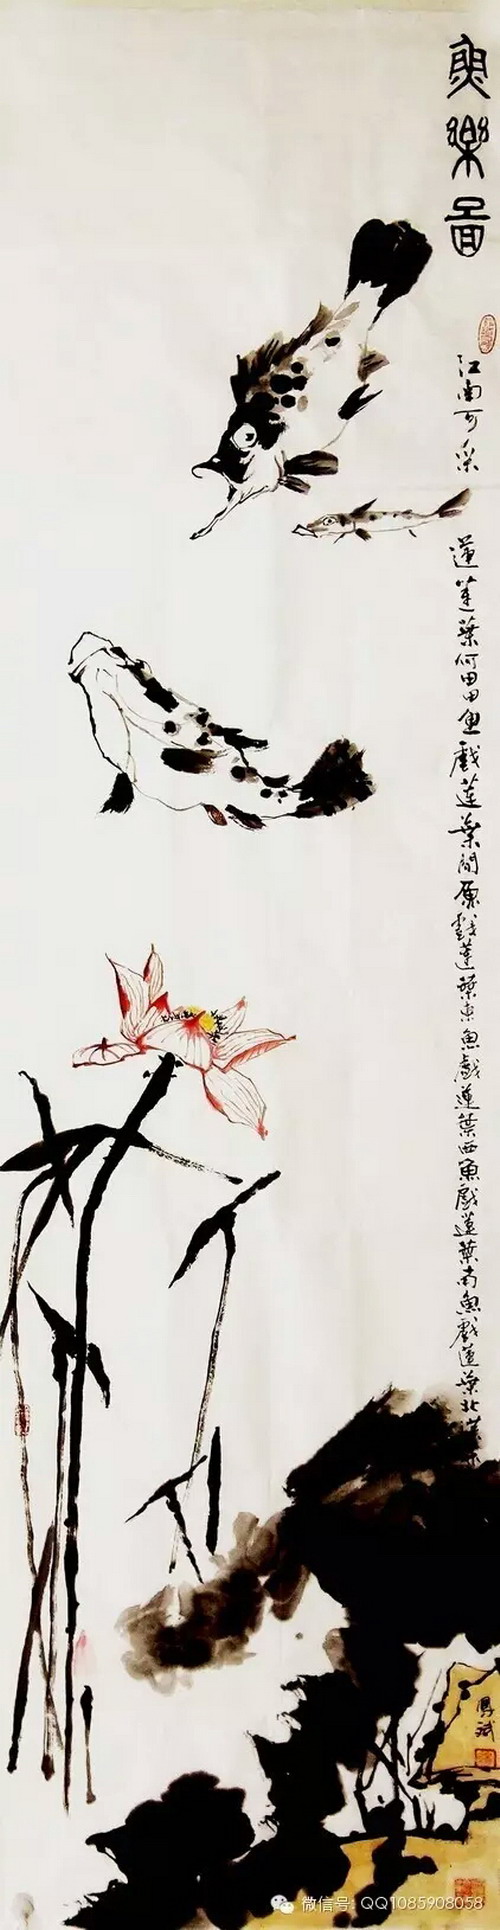 魚樂圖
江南可采
蓮蓮葉何田田魚戲蓮葉間魚戲蓮葉東魚戲蓮葉西魚戲蓮葉南魚戲蓮葉北
鳳斌
微信号: QQ1085908058